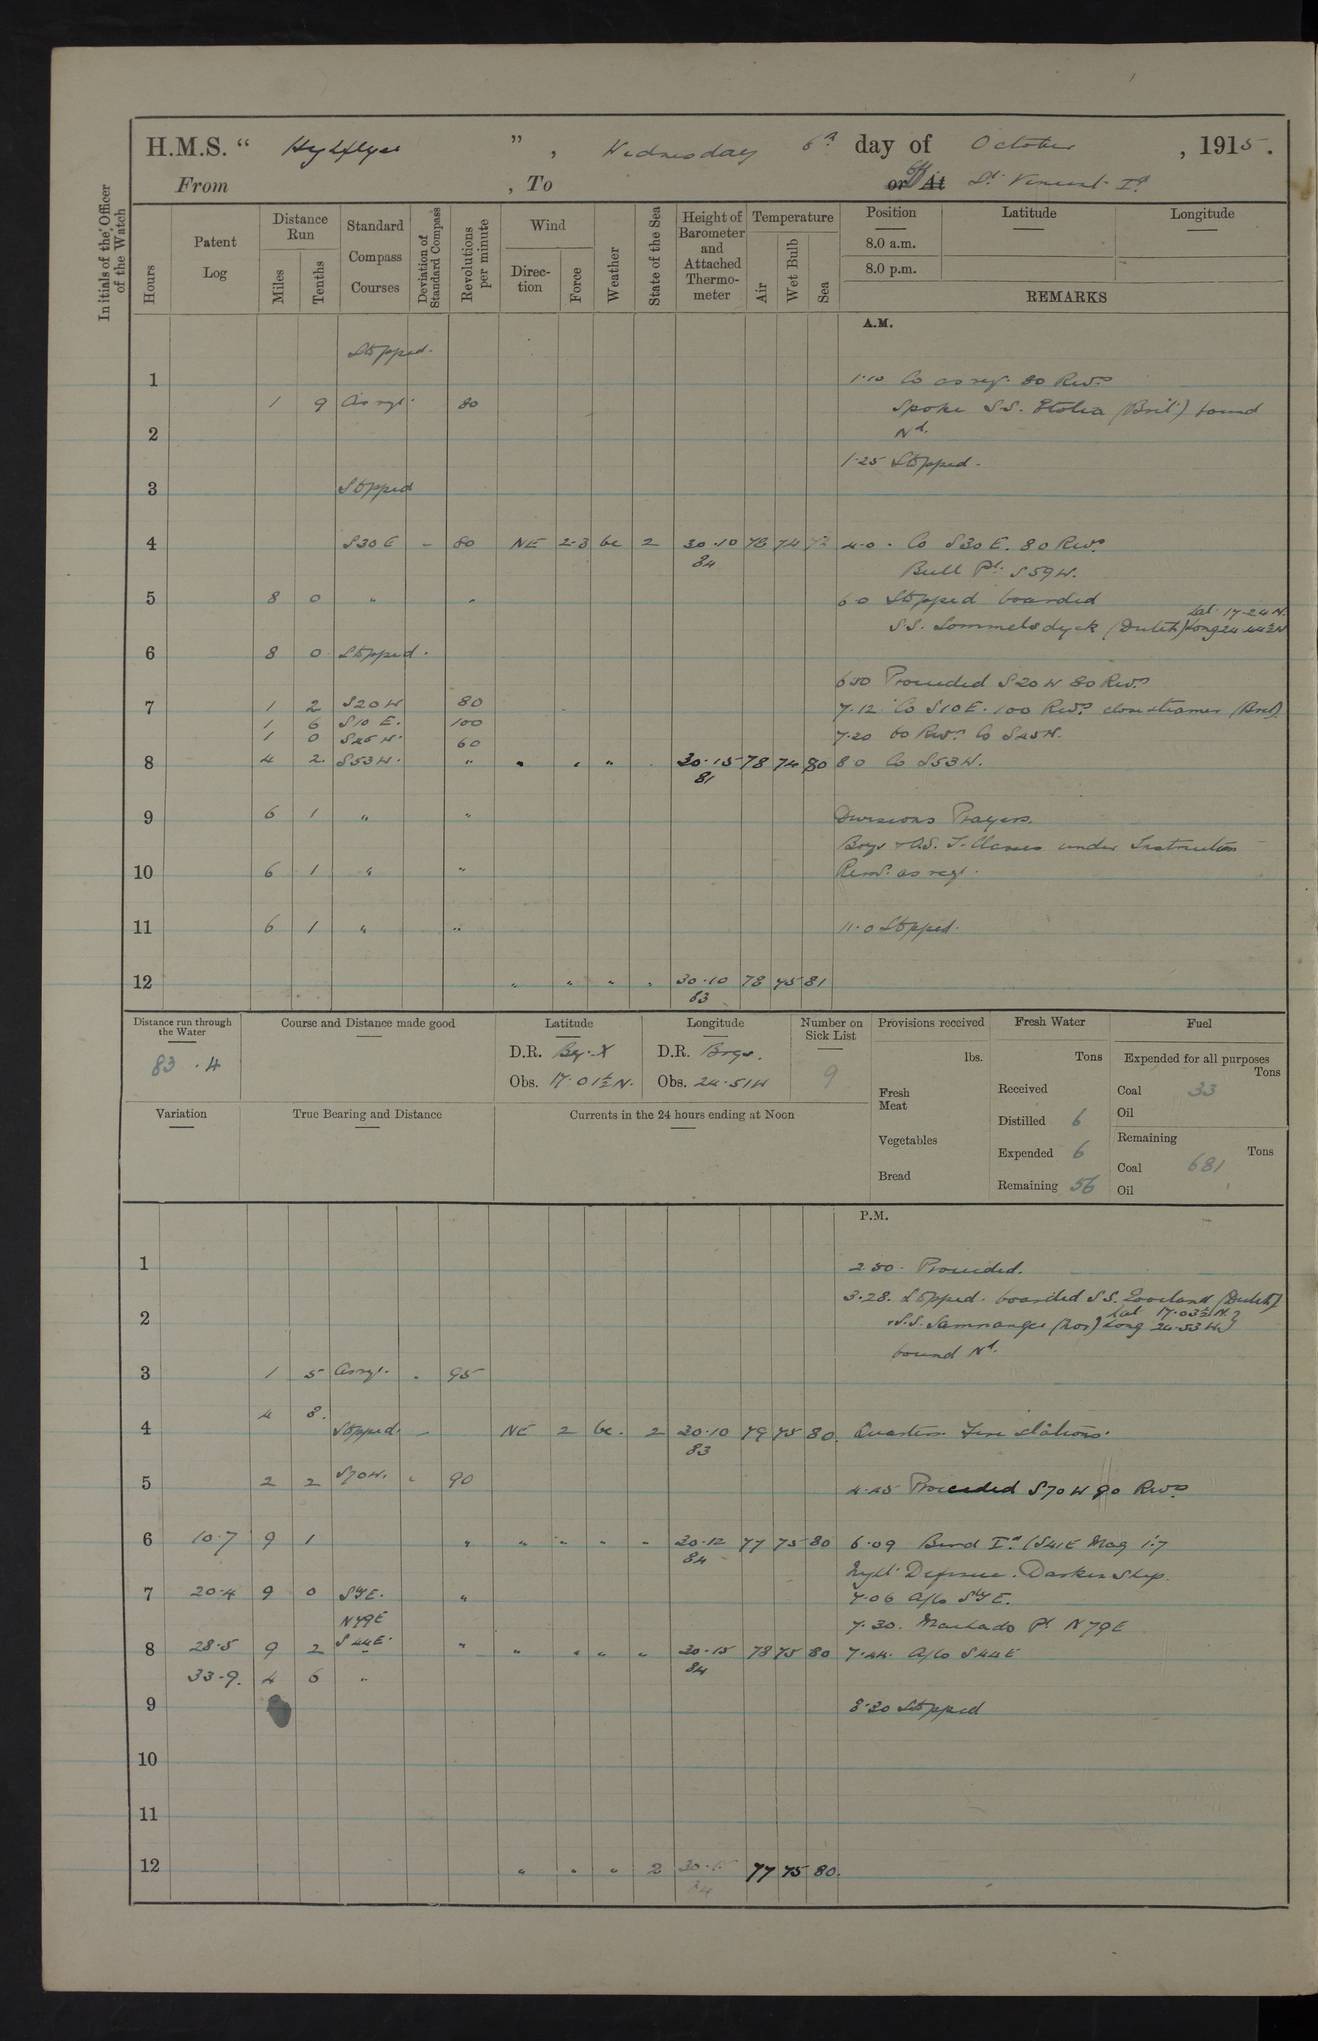 H.M.S. “ Highflyer ” , Wednesday 6th day of October , 1915.
From , To or At Off St. Vincent Id
Initials of the Officer of the Watch
Hours
Patent Log
Distance Run
Miles
Tenths
Standard Compass Courses
Deviation of Standard Compass
Revolutions per minute
Wind
Direction
Force
Weather
State of the Sea
Height of Barometer and Attached Thermometer
Temperature
Air
Wet Bulb
Sea
Position Latitude Longitude
8.0 a.m.
8.0 p.m.
REMARKS
A.M.
Stopped.
1 1.10 Co as req. 80 Revs
1 9 As req. 80 Spoke S.S. Etolia (Brit) bound
2 Nd.
1.25 Stopped.
3 Stopped
4 S30E - 80 NE 2-3 bc 2 30.10 78 74 4.0. Co S30E. 80 Revs
84 Bull Pt. S59W.
5 8 0 " " 6.0 Stopped boarded
S.S. Sommelsdyck (Dutch) Lat. 17-24 N. Long 24-44½
6 8 0 Stopped.
6.50 Proceeded S20W 80 Revs
7 1 2 S20W 80 7.12 Co S10E. 100 Revs close steamer (Brit)
1 6 S10E. 100
1 0 S45W. 60 7.20 60 Revs Co S45W.
8 4 2 S53W. " " " " 30.15 78 74 80 8.0 Co S53W.
81
9 6 1 " " Divisions Prayers.
Boys & O.S. T. Classes under Instruction
10 6 1 " " Remr. as req.
11 6 1 " " 11.0 Stopped.
12 " " " " 30.10 78 75 81
83
Distance run through the Water
83.4
Course and Distance made good
Latitude
D.R. By X
Obs. 17.01½ N.
Longitude
D.R. Brgs.
Obs. 24-51W
Number on Sick List
9
Provisions received
lbs.
Fresh Meat
Vegetables
Bread
Fresh Water
Tons
Received
Distilled 6
Expended 6
Remaining 56
Fuel
Expended for all purposes
Tons
Coal 33
Oil
Remaining
Tons
Coal 681
Oil
Variation
True Bearing and Distance
Currents in the 24 hours ending at Noon
P.M.
1 2.50. Proceeded.
3.28. Stopped. boarded S.S. (Dutch)
2 S.S. Samnanger (Nor) Lat 17.03½ N. Long 24-53W
bound Nd.
3 1 5 As req. . 95
4 8.
4 Stopped. - NE 2 bc. 2 30.10 79 75 80. Quarters. Fire Stations.
83
5 2 2 S70W. " 90 4.45 Proceeded S70W 90 Revs
6 10.7 9 1 " " " " " 30.12 77 75 80 6.09 Bird Id (S41E Mag 1'.7
84 Night Defence. Darken Ship.
7 20.4 9 0 SyE. " 7.06 A/co SyE.
N79E 7.30. Machado Pt N79E
8 28.5 9 2 S44E. " " " " " 30.15 78 75 80 7.44. A/co S44E
84
33.9. 4 6 "
9 8.30 Stopped
10
11
12 " " " 2 30.15 77 75 80.
84